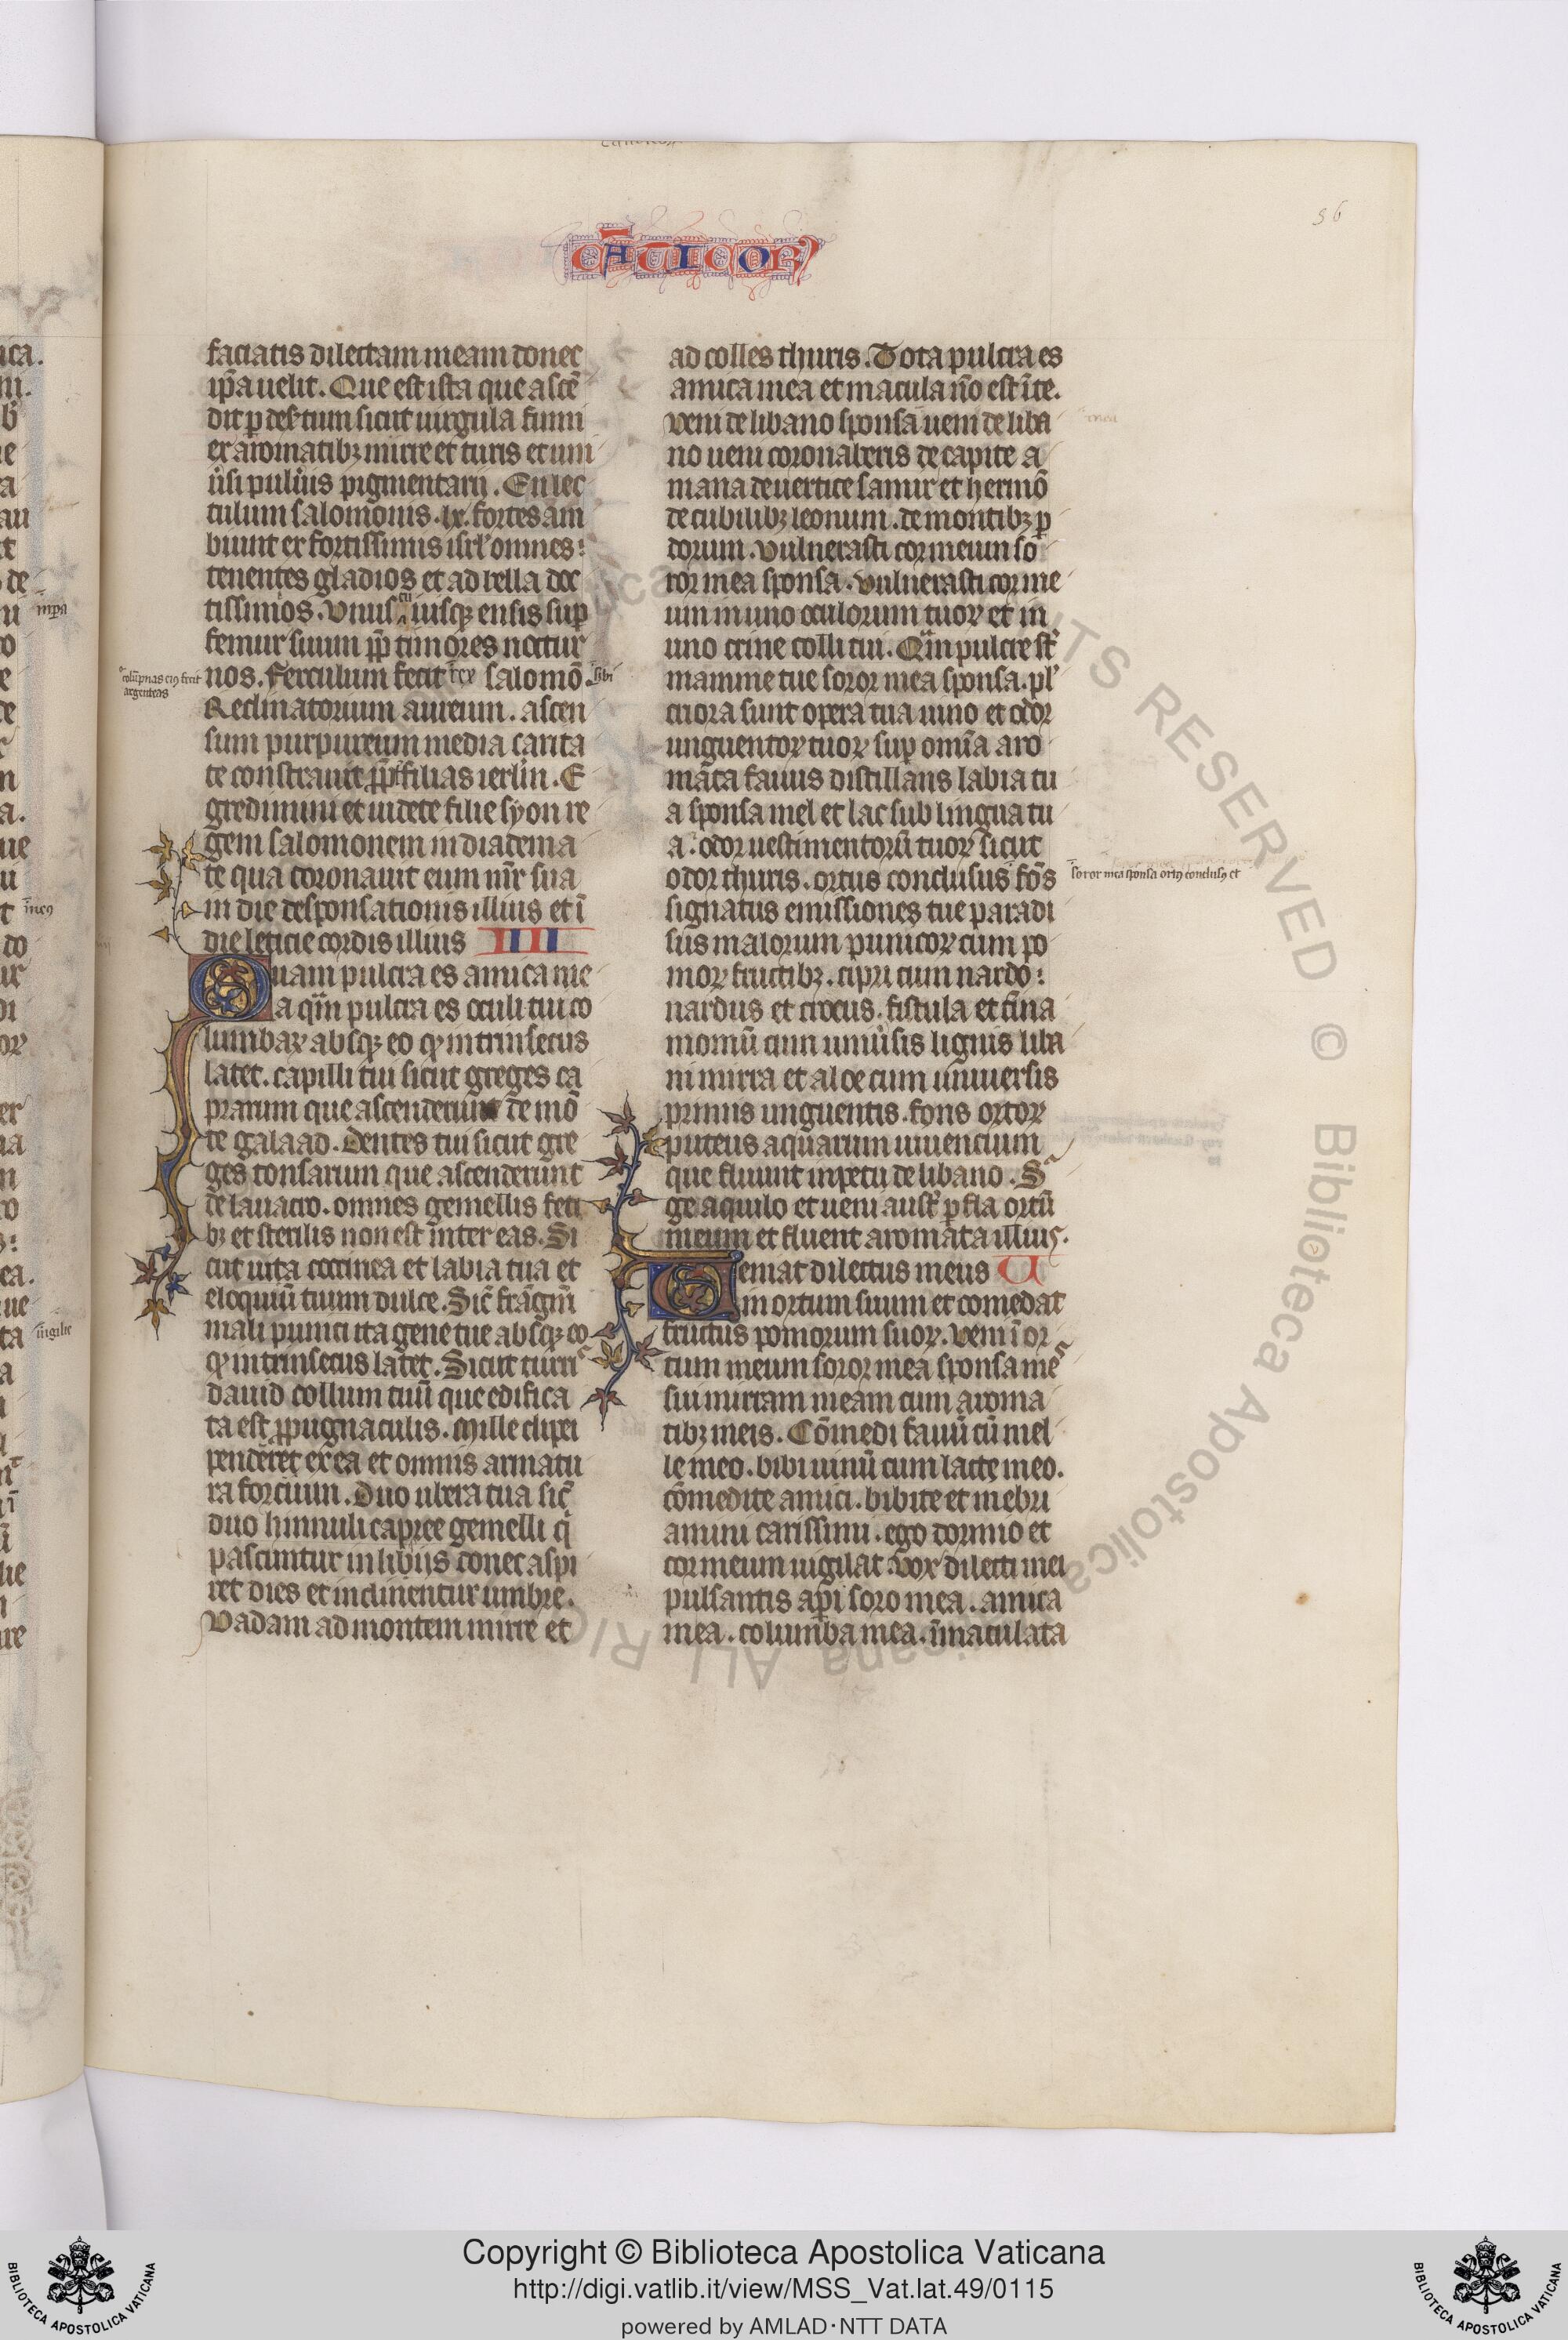 56
CA̅TICOꝜ
faciatis dilectam meam donec
ip̅a uelit. Que est ista que asce̅
dit ꝑ deẜtum sicut uirgula fumi
ex aromatibꝫ mirre et turis et uni
ũsi puluis pigmentarij. En lec
tulum salomonis .lx. fortes am
biunt ex fortissimis isrl̕ omnes:
tenentes gladios et ad bella doc
tissimos. Vnius cu iusqꝫ ensis suꝑ
femur suum ꝓp̅ timores noctur
nos. Ferculum fecit rex salomo̅. sibi
colu̅pnas eiꝰ fecit
argenteas
Reclinatorium aureum. ascen
sum purpureum media carita
te constrauit ꝓpt̕ filias ierlm̅. E
gredimini et uidete filie syon re
gem salomonem in diadema
te qua coronauit eum mr̅ sua
in die desponsationis illius et i̅
die leticie cordis illius IIII
Quam pulcra es amica me
a qm̅ pulcra es oculi tui co
lumbaꝝ absqꝫ eo qͦ intrinsecus
latet. capilli tui sicut greges ca
prarum que ascenderunt de mo̅
te galaad. Dentes tui sicut gre
ges tonsarum que ascenderunt
de lauacro. omnes gemellis feti
bꝫ et sterilis non est inter eas. Si
cut uita coccinea et labia tua et
eloquiu̅ tuum dulce. Sic̅ fra̅gm̅
mali punici ita gene tue absqꝫ eo
qͦ intrinsecus latet. Sicut turris
dauid collum tuu̅ que edifica
ta est ꝓpugnaculis. Mille clipei
pendent ex ea et omnis armatu
ra forcium. Duo ubera tua sic̅
duo hinnuli capree gemelli qͥ
pascuntur in libijs donec aspi
ret dies et inclinentur umbre.
Vadam ad montem mirre et
ad colles thuris. Tota pulcra es
amica mea et macula no̅ est i̅ te.
Veni de libano sponsa ueni de liba
no ueni coronaberis de capite a
mana de uertice samir et hermo̅
de cubilibꝫ leonum. de montibꝫ ꝑ
dorum. Vulnerasti cor meum so
ror mea sponsa. Vulnerasti cor me
um in uno oculorum tuoꝝ et in
uno crine colli tui. Qm̅ pulcre st̅
mamme tue soror mea sponsa. pl̕
criora sunt opera tua uino et odor
unguentoꝝ tuoꝝ suꝑ om̅ia aro
ma̅ta fauus distillans labia tu
a sponsa mel et lac sub lingua tu
a. odor uestimentoru̅ tuoꝝ sicut
odor thuris. ortus conclusus fo̅s
soror mea sponsa ortꝰ conclusꝰ et
signatus emissiones tue paradi
sus malorum punicoꝝ cum po
moꝝ fructibꝫ. cipri cum nardo:
nardus et crocus. fistula et cina
momu̅ cum uniũsis lignis liba
ni mirra et aloe cum uniuersis
primis unguentis. fons ortoꝝ
puteus aquarum uiuencium
que fluunt inpetu de libano. Sr
ge aquilo et ueni aust̕ ꝑfla ortu̅
meum et fluent aromata illius.
Veniat dilectus meus V
in ortum suum et comedat
fructus pomorum suoꝝ. Veni i̅ or
tum meum soror mea sponsa mes
sui mirram meam cum aroma
tibꝫ meis. Co̅medi fauu̅ cu̅ mel
le meo. bibi uinu̅ cum lacte meo.
co̅medite amici. bibite et inebri
amini carissimi. ego dormio et
cor meum uigilat. Vox dilecti mei
pulsantis api̅ soro mea. amica
mea. columba mea. i̅maculata
Copyright © Biblioteca Apostolica Vaticana
http://digi.vatlib.it/view/MSS_Vat.lat.49/0115
powered by AMLAD·NTT DATA